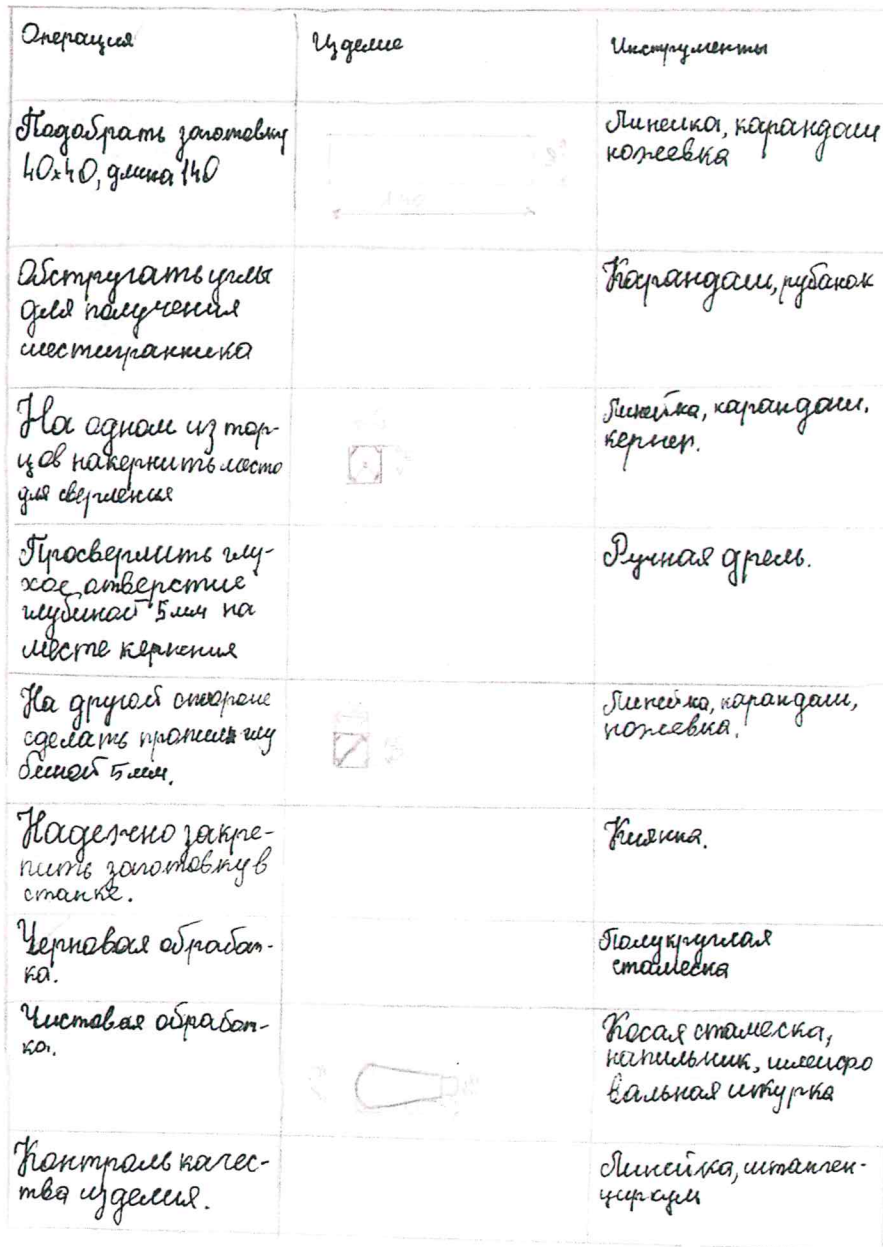 Операция
Изделие
Инструменты
Подобрать заготовку
40х40, длина 140
140
Линейка, карандаш
ножевка
Обстругать углы
для получения
шестигранника
Карандаш, рубанок
На одном из тор-
цов накернить место
для сверления
Линейка, карандаш,
кернер.
Просверлить глу-
хое отверстие
глубиной 5мм на
месте кернения
Ручная дрель.
На другой стороне
сделать пропил глу
биной 5мм.
Линейка, карандаш,
ножевка.
Надежно закре-
пить заготовку в
станке.
Киянка.
Черновая обработ-
ка.
Полукруглая
стамеска
Чистовая обработ-
ка.
Косая стамеска,
напильник, шлифо
вальная шкурка
Контроль качес-
тва изделия.
Линейка, штанген-
циркуль